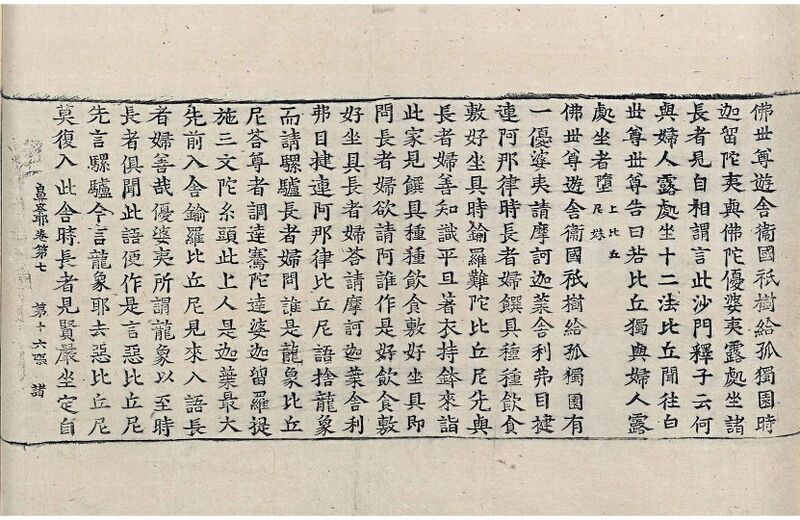 佛世尊遊舍衞國祇樹給孤獨園時
迦留陀夷與佛陀優婆夷露處坐諸
長者見自相謂言此沙門釋子云何
與婦人露處坐十二法比丘聞往白
世尊世尊告曰若比丘獨與婦人露
處坐者墮 上比丘尼妹
佛世尊遊舍衞國祇樹給孤獨園有
一優婆夷請摩訶迦葉舍利弗目揵
連阿那律時長者婦饌具種種飲食
敷好坐具時鍮羅難陀比丘尼先與
長者婦善知識平旦著衣持鉢來詣
此家見饌具種種飲食敷好坐具即
問長者婦欲請阿誰作是好飲食敷
好坐具長者婦荅請摩訶迦葉舍利
弗目揵連阿那律比丘尼語捨龍象
而請騾驢長者婦問誰是龍象比丘
尼荅尊者調達騫陀達婆迦留羅提
施三文陀系頭此上人是迦葉最大
先前入舍鍮羅比丘尼見來入語長
者婦善哉優婆夷所謂龍象以至時
長者俱聞此語便作是言惡比丘尼
先言騾驢今言龍象耶去惡比丘尼
莫復入此舍時長者見賢嚴坐定自
鼻奈耶卷第七 第十六張 諸